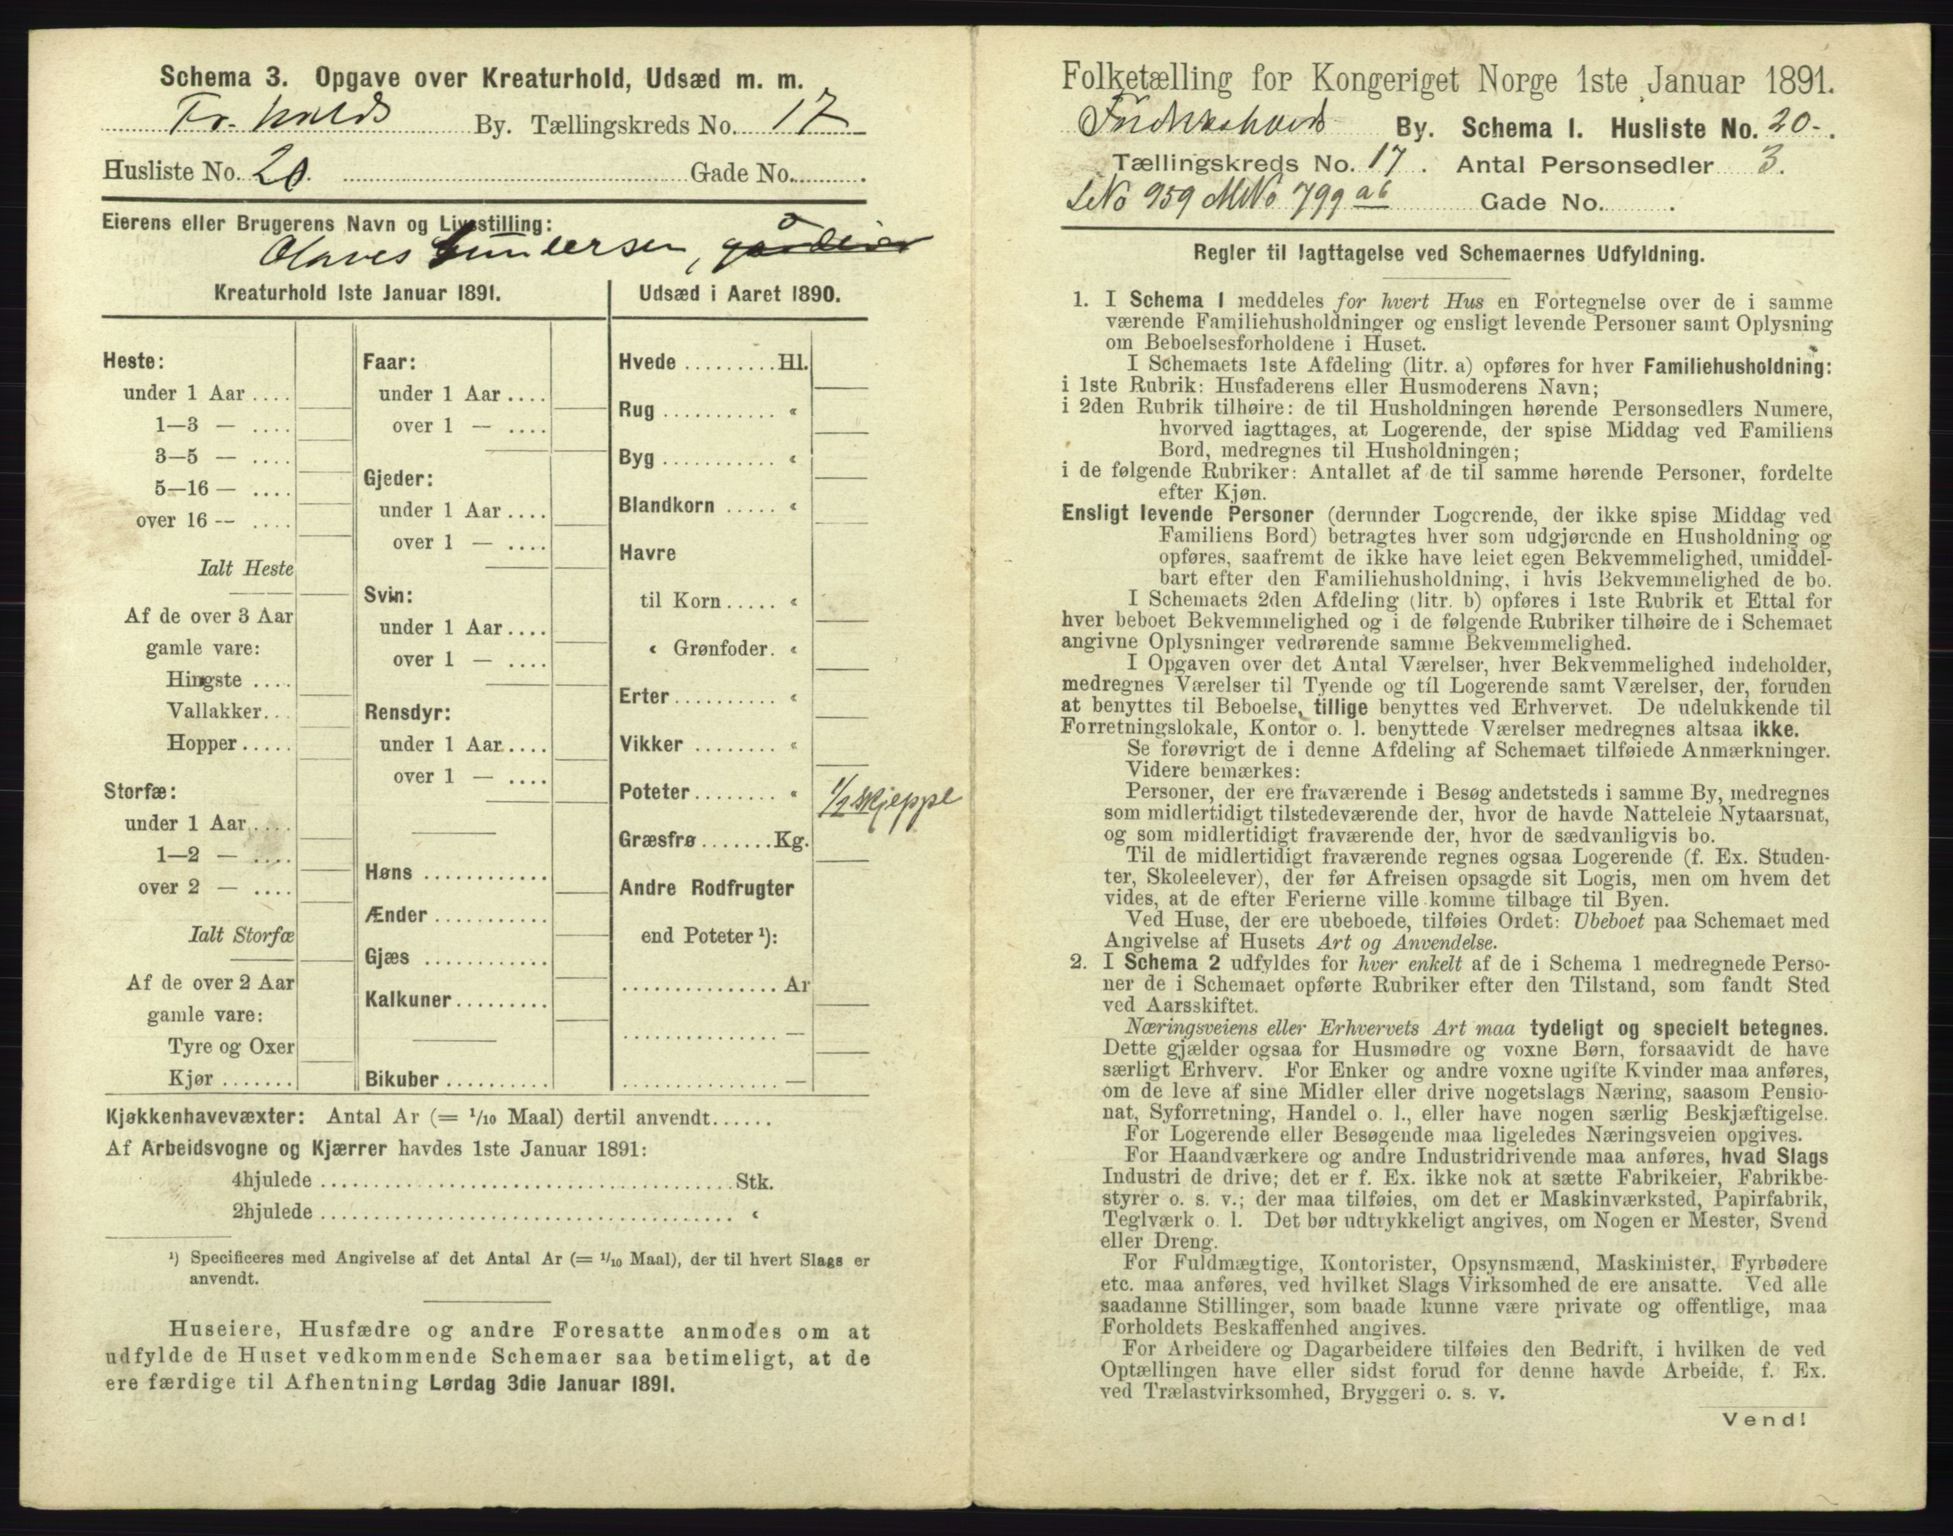 Schema 3. Opgave over Kreaturhold, Udsæd m. m.
Fr.halds By. Tællingskreds No. 17
Husliste No. 20. Gade No. .
Eierens eller Brugerens Navn og Livsstilling:
Olaves Gundersen,
Kreaturhold 1ste Januar 1891.
Heste:
under 1 Aar ....
1—3 — ....
3—5 — ....
5—16 — ....
over 16 -- ....
Ialt Heste
Af de over 3 Aar
gamle vare:
Hingste ....
Vallakker...
Hopper.....
Storfæ:
under 1 Aar....
1—2 — ....
over 2 — ....
Ialt Storfæ
Af de over 2 Aar
gamle vare:
Tyre og Oxer
Kjør .......
Faar:
under 1 Aar ....
over 1 — ....
Gjeder:
under 1 Aar ....
over 1 — ....
Svin:
under 1 Aar....
over 1 — ....
Rensdyr:
under 1 Aar....
over 1 — ....
Høns ............
Ænder ...........
Gjæs ............
Kalkuner.........
Bikuber ..........
Udsæd i Aaret 1890.
Hvede .........Hl.
Rug ........... «
Byg ........... «
Blandkorn ..... «
Havre
til Korn..... «
« Grønfoder. «
Erter.......... «
Vikker ........ «
Poteter........ « 1/2 skjeppe
Græsfrø.......Kg.
Andre Rodfrugter
end Poteter ¹):
...............Ar
................—
................—
Kjøkkenhavevæxter: Antal Ar (= 1/10 Maal) dertil anvendt......
Af Arbeidsvogne og Kjærrer havdes 1ste Januar 1891:
4hjulede ........................................Stk.
2hjulede ........................................ «
¹) Specificeres med Angivelse af det Antal Ar (= 1/10 Maal), der til hvert Slags er
anvendt.
Huseiere, Husfædre og andre Foresatte anmodes om at
udfylde de Huset vedkommende Schemaer saa betimeligt, at de
ere færdige til Afhentning Lørdag 3die Januar 1891.
Folketælling for Kongeriget Norge 1ste Januar 1891.
Fredrikshald By. Schema I. Husliste No. 20-.
Tællingskreds No. 17. Antal Personsedler 3.
LNo 959 MNo 799 ab Gade No. .
Regler til Iagttagelse ved Schemaernes Udfyldning.
1. I Schema 1 meddeles for hvert Hus en Fortegnelse over de i samme
værende Familiehusholdninger og ensligt levende Personer samt Oplysning
om Beboelsesforholdene i Huset.
I Schemaets 1ste Afdeling (litr. a) opføres for hver Familiehusholdning:
i 1ste Rubrik: Husfaderens eller Husmoderens Navn;
i 2den Rubrik tilhøire: de til Husholdningen hørende Personsedlers Numere,
hvorved iagttages, at Logerende, der spise Middag ved Familiens
Bord, medregnes til Husholdningen;
i de følgende Rubriker: Antallet af de til samme hørende Personer, fordelte
efter Kjøn.
Ensligt levende Personer (derunder Logerende, der ikke spise Middag ved
Familiens Bord) betragtes hver som udgjørende en Husholdning og
opføres, saafremt de ikke have leiet egen Bekvemmelighed, umiddel-
bart efter den Familiehusholdning, i hvis Bekvemmelighed de bo.
I Schemaets 2den Afdeling (litr. b) opføres i 1ste Rubrik et Ettal for
hver beboet Bekvemmelighed og i de følgende Rubriker tilhøire de i Schemaet
angivne Oplysninger vedrørende samme Bekvemmelighed.
I Opgaven over det Antal Værelser, hver Bekvemmelighed indeholder,
medregnes Værelser til Tyende og til Logerende samt Værelser, der, foruden
at benyttes til Beboelse, tillige benyttes ved Erhvervet. De udelukkende til
Forretningslokale, Kontor o. l. benyttede Værelser medregnes altsaa ikke.
Se forøvrigt de i denne Afdeling af Schemaet tilføiede Anmærkninger.
Videre bemærkes:
Personer, der ere fraværende i Besøg andetsteds i samme By, medregnes
som midlertidigt tilstedeværende der, hvor de havde Natteleie Nytaarsnat,
og som midlertidigt fraværende der, hvor de sædvanligvis bo.
Til de midlertidigt fraværende regnes ogsaa Logerende (f. Ex. Studen-
ter, Skoleelever), der før Afreisen opsagde sit Logis, men om hvem det
vides, at de efter Ferierne ville komme tilbage til Byen.
Ved Huse, der ere ubeboede, tilføies Ordet: Ubeboet paa Schemaet med
Angivelse af Husets Art og Anvendelse.
2. I Schema 2 udfyldes for hver enkelt af de i Schema 1 medregnede Perso-
ner de i Schemaet opførte Rubriker efter den Tilstand, som fandt Sted
ved Aarsskiftet.
Næringsveiens eller Erhvervets Art maa tydeligt og specielt betegnes.
Dette gjælder ogsaa for Husmødre og voxne Børn, forsaavidt de have
særligt Erhverv. For Enker og andre voxne ugifte Kvinder maa anføres,
om de leve af sine Midler eller drive nogetslags Næring, saasom Pensio-
nat, Syforretning, Handel o. l., eller have nogen særlig Beskjæftigelse.
For Logerende eller Besøgende maa ligeledes Næringsveien opgives.
For Haandværkere og andre Industridrivende maa anføres, hvad Slags
Industri de drive; det er f. Ex. ikke nok at sætte Fabrikeier, Fabrikbe-
styrer o. s. v.; der maa tilføies, om det er Maskinværksted, Papirfabrik,
Teglværk o. l. Det bør udtrykkeligt angives, om Nogen er Mester, Svend
eller Dreng.
For Fuldmægtige, Kontorister, Opsynsmænd, Maskinister, Fyrbødere
etc. maa anføres, ved hvilket Slags Virksomhed de ere ansatte. Ved alle
saadanne Stillinger, som baade kunne være private og offentlige, maa
Forholdets Beskaffenhed angives.
For Arbeidere og Dagarbeidere tilføies den Bedrift, i hvilken de ved
Optællingen have eller sidst forud for denne havde Arbeide, f. Ex.
ved Trælastvirksomhed, Bryggeri o. s. v.
Vend!